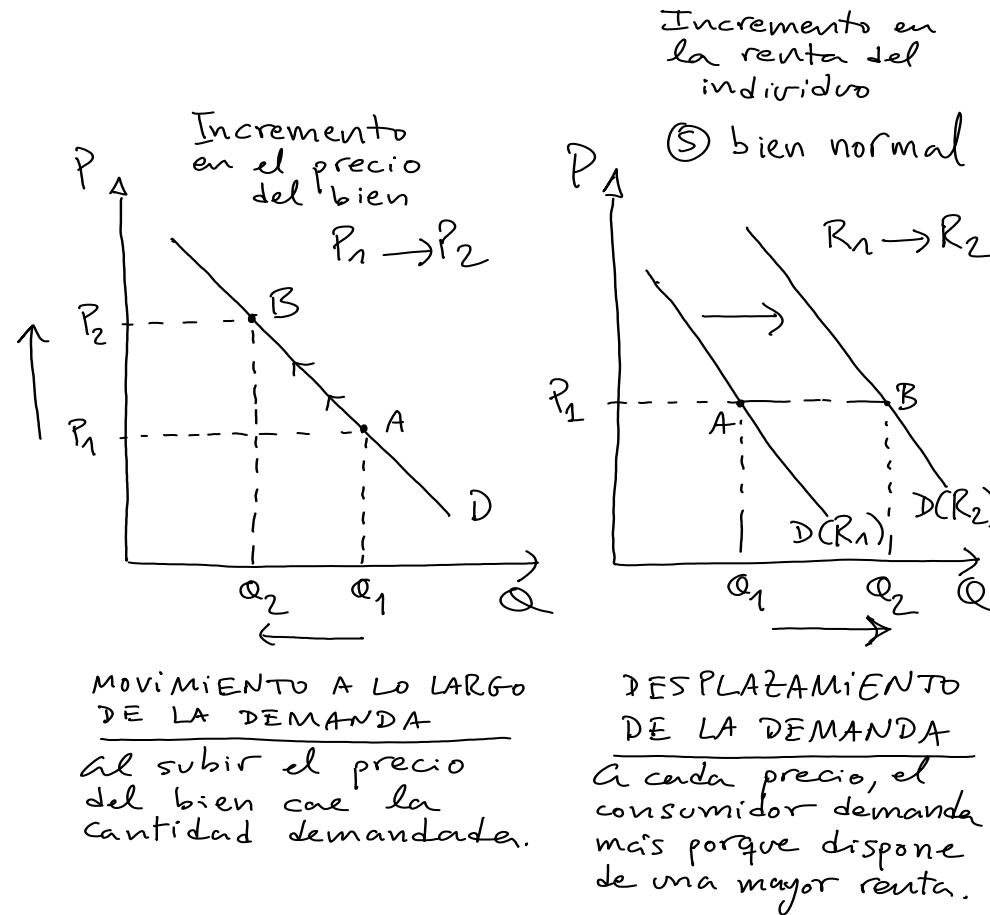 Incremento
en el precio
del bien
P₁ → P₂
P
P₂
P₁
B
A
D
Q₂
Q₁
Q
MOVIMIENTO A LO LARGO
DE LA DEMANDA
al subir el precio
del bien cae la
cantidad demandada.
Incremento en
la renta del
individuo
Ⓢ bien normal
R₁ → R₂
P
P₁
A
B
D(R₁)
D(R₂)
Q₁
Q₂
Q
DESPLAZAMIENTO
DE LA DEMANDA
a cada precio, el
consumidor demanda
más porque dispone
de una mayor renta.